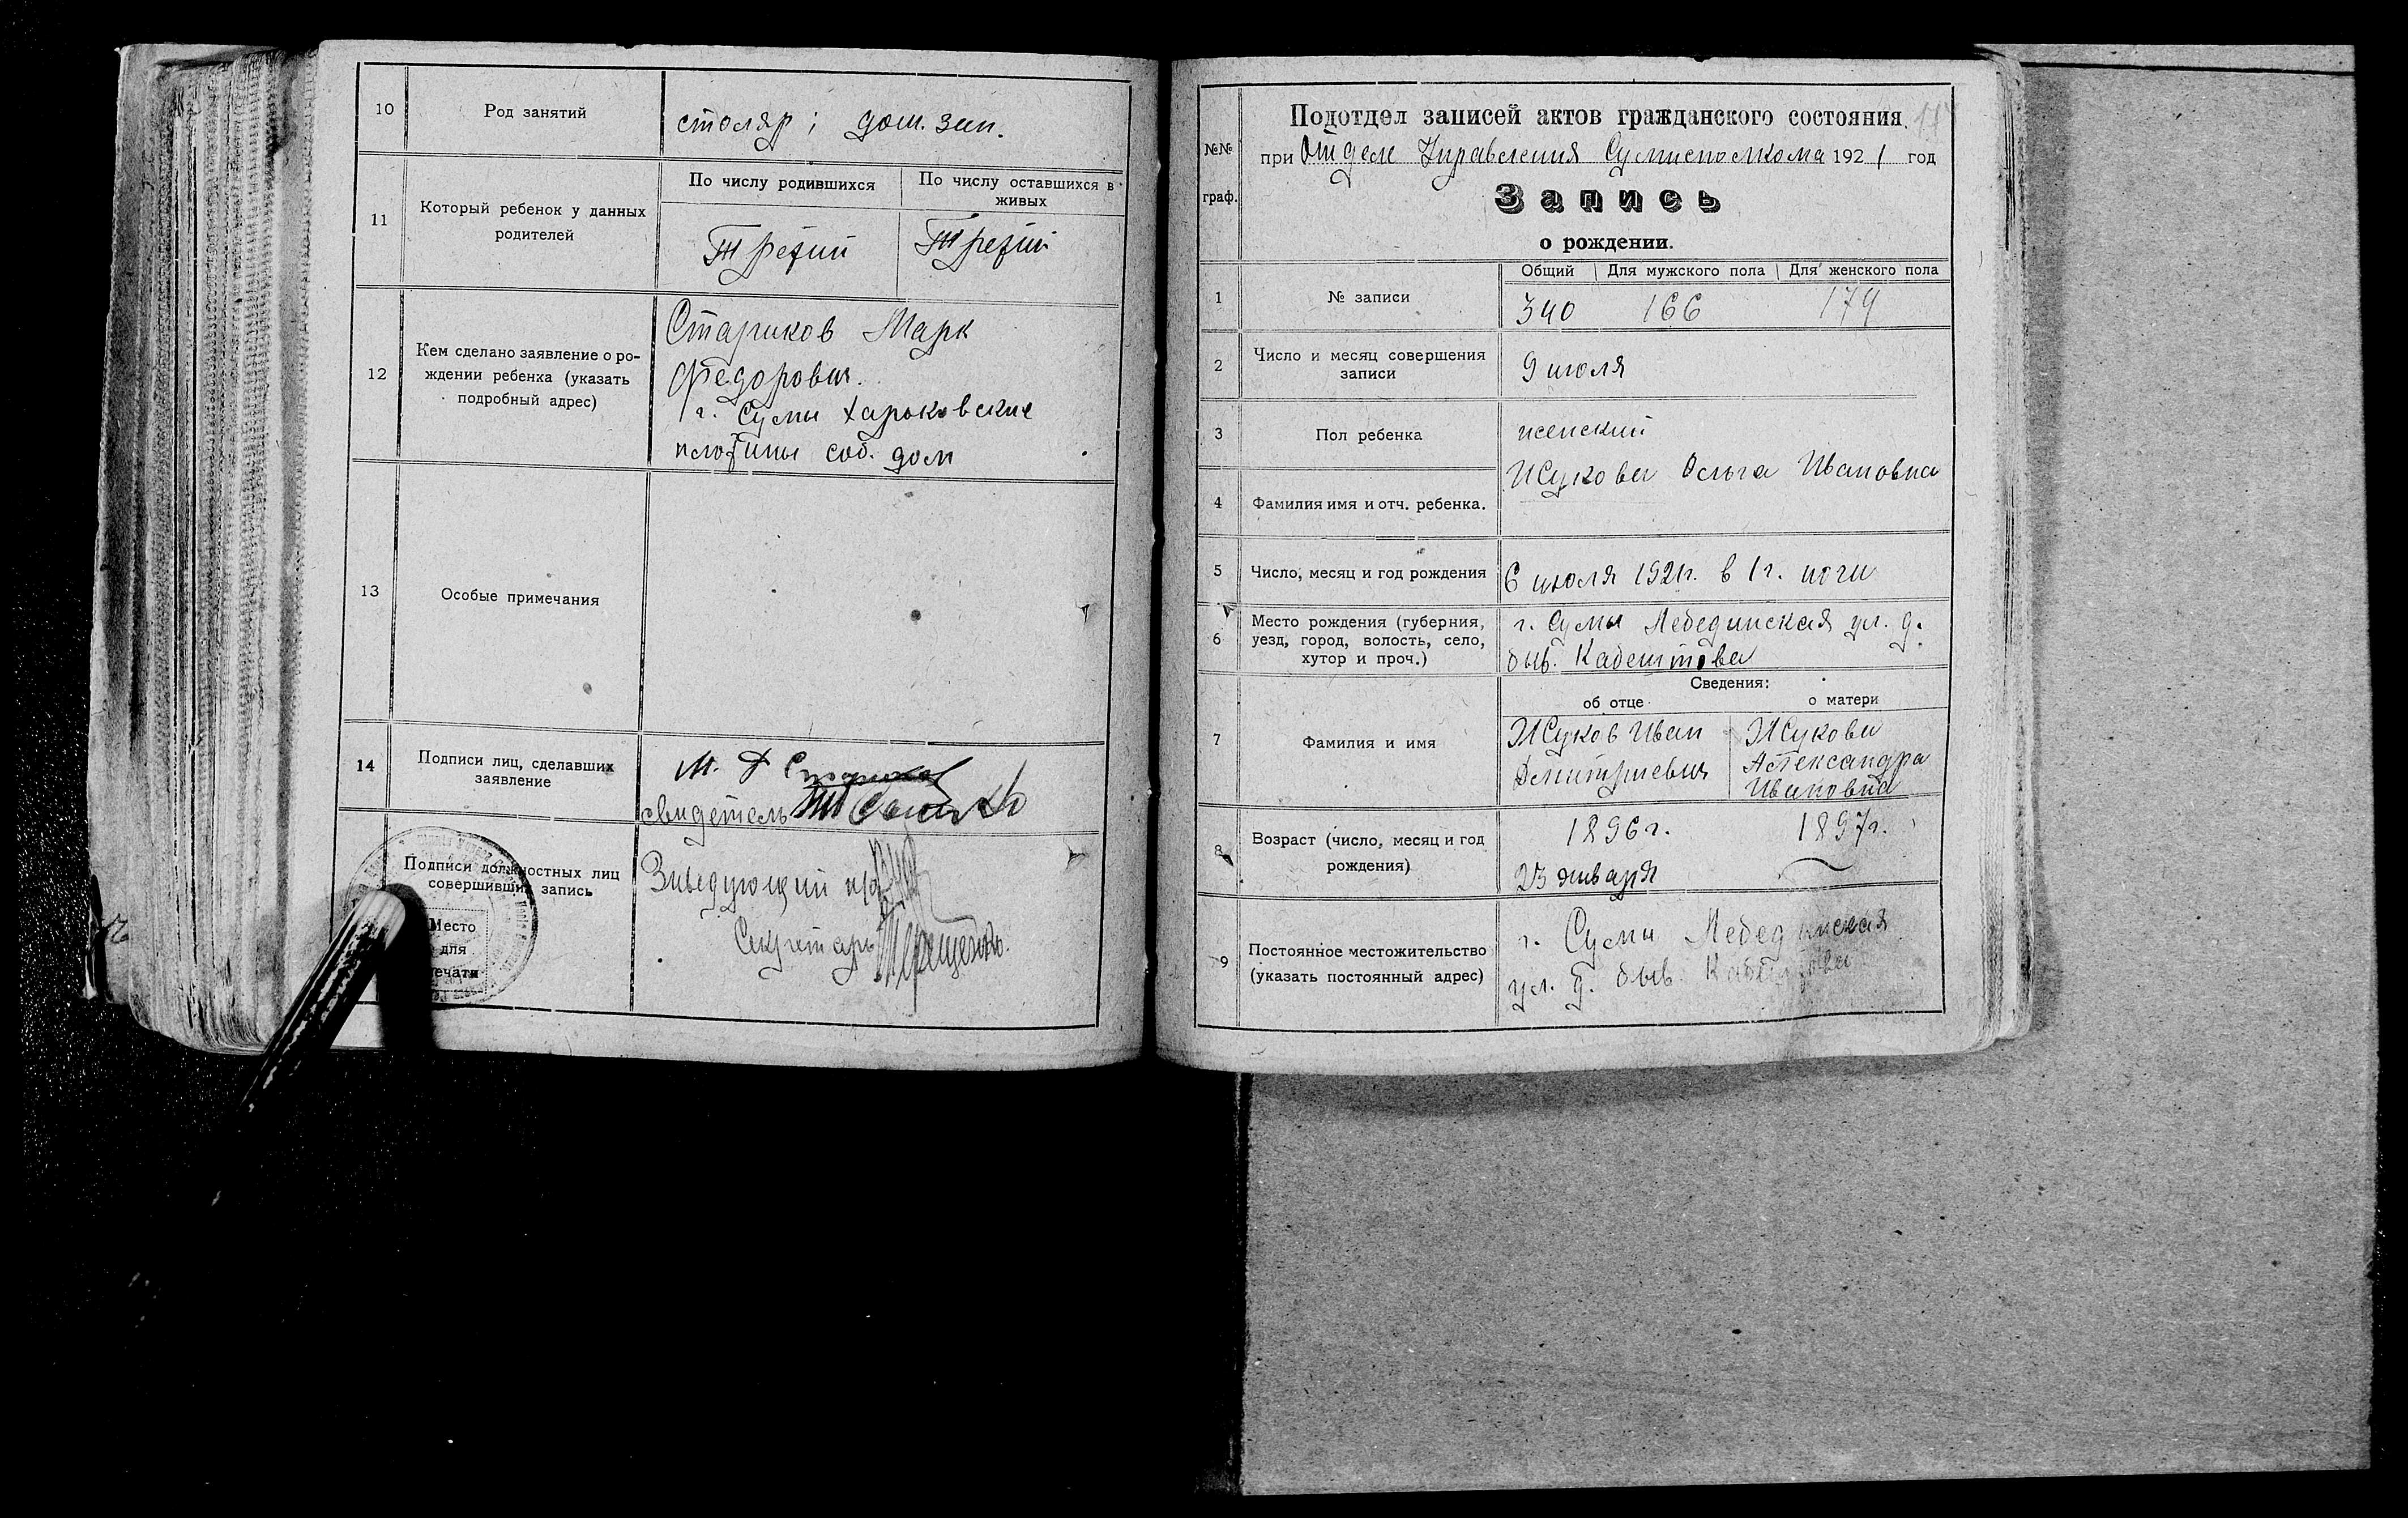 10
Род занятий
столяр; дом. зан.
11
Который ребенок у данных
родителей
По числу родившихся
По числу оставшихся в
живых
Третий
Третий
12
Кем сделано заявление о ро-
ждении ребенка (указать
подробный адрес)
Стариков Марк
Федорович.
г. Сумы Харьковские
плотины соб. дом
13
Особые примечания
14
Подписи лиц, сделавших
заявление
М. Ф Стариков
свидетель
Подписи должностных лиц
совершивших запись
Место
для
печати
Заведующий п/о
Секретарь Терещенко.
№№
граф.
Подотдел записей актов гражданского состояния.
при Отделе Управления Сумисполкома 1921 год
Запись
о рождении.
1
№ записи
Общий
Для мужского пола
Для женского пола
340
166
174
2
Число и месяц совершения
записи
9 июля
3
Пол ребенка
женский
4
Фамилия имя и отч. ребенка.
Жукова Ольга Ивановна
5
Число, месяц и год рождения
6 июля 1921г. в 1 г. ночи
6
Место рождения (губерния,
уезд, город, волость, село,
хутор и проч.)
г. Сумы Лебединская ул. д.
быв.
7
Фамилия и имя
Сведения:
об отце
о матери
Жуков Иван
Дмитриевич
Жукова
Александра
Ивановна
8
Возраст (число, месяц и год
рождения)
1896 г.
23 января
1897г.
9
Постоянное местожительство
(указать постоянный адрес)
г. Сумы Лебединская
ул. д. быв.